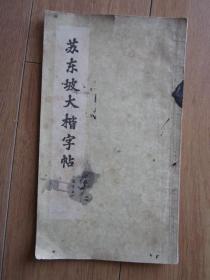 苏东坡大楷字帖